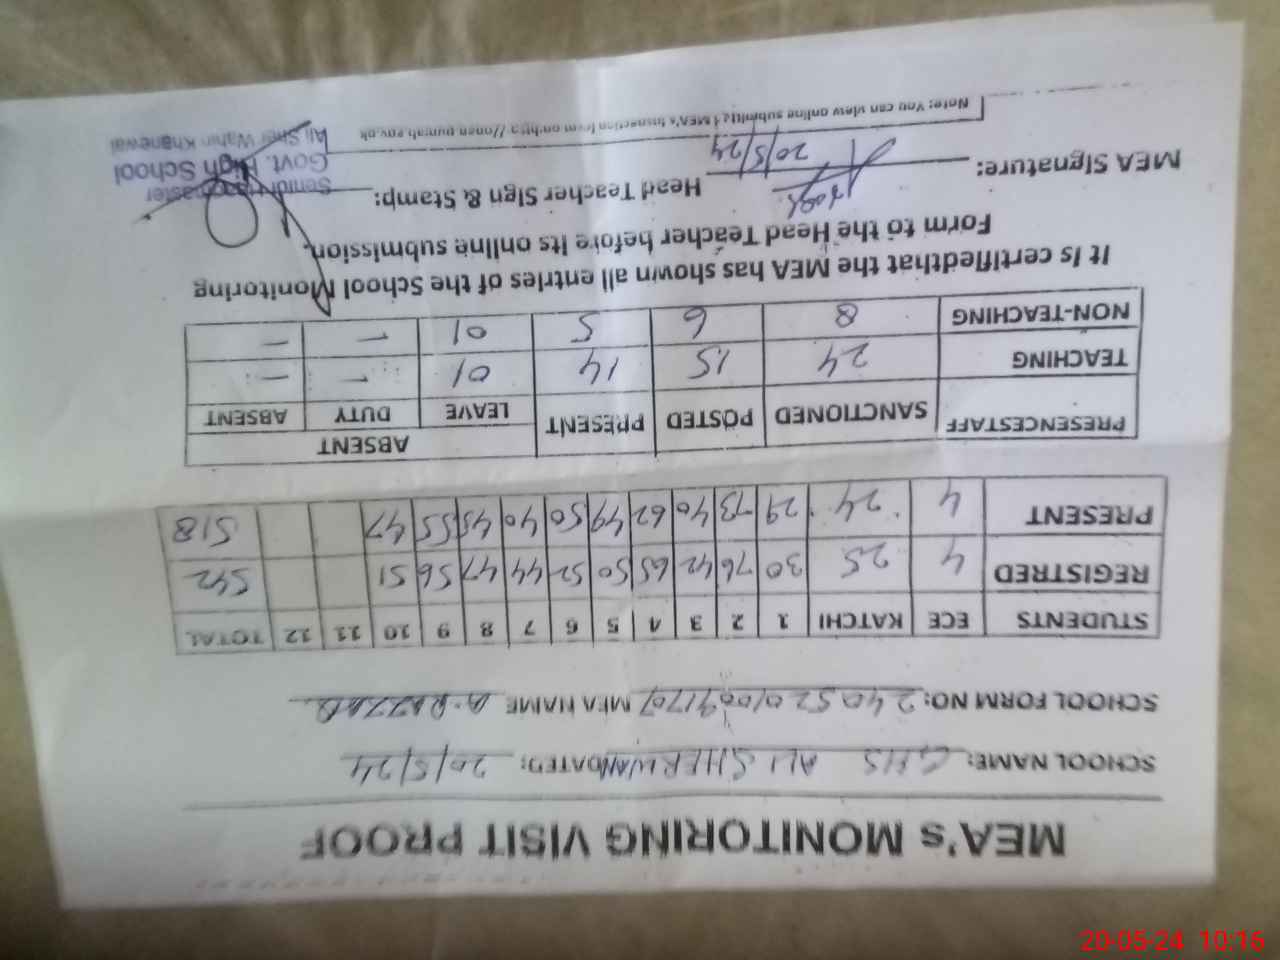 MEA's MONITORING VISIT PROOF
SCHOOL NAME: GHS ALI SHER WAHAN DATED: 20/5/24
SCHOOL FORM NO: MEA NAME A. RAZZAQ
STUDENTS ECE KATCHI 1 2 3 4 5 6 7 8 9 10 11 12 TOTAL
REGISTRED 4 25 30 76 42 65 50 52 44 47 56 51 542
PRESENT 4 24 29 73 40 62 49 50 40 45 55 47 518
ABSENT
PRESENCESTAFF SANCTIONED POSTED PRESENT LEAVE DUTY ABSENT
TEACHING 24 15 14 01 – –
NON-TEACHING 8 6 5 01 – –
It is certifiedthat the MEA has shown all entries of the School Monitoring
Form to the Head Teacher before its online submission.
MEA Signature: 20/5/24 Head Teacher Sign & Stamp:
Senior Headmaster
Govt. High School
Ali Sher Wahin Khanewal
Note: You can view online submitted MEA's inspection form on
20-05-24 10:16